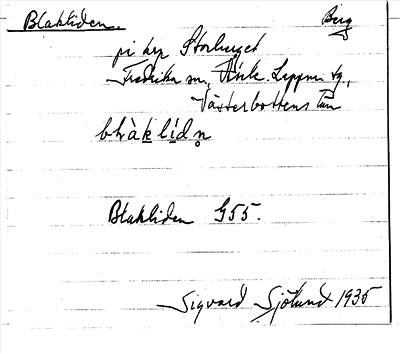 Blakliden. Berg
på krp Storberget
Fredrika sn, Åsele Lappm. tg,
Västerbottens län
blàklídn̥
Blakliden G55.
Sigvard Sjölund 1935